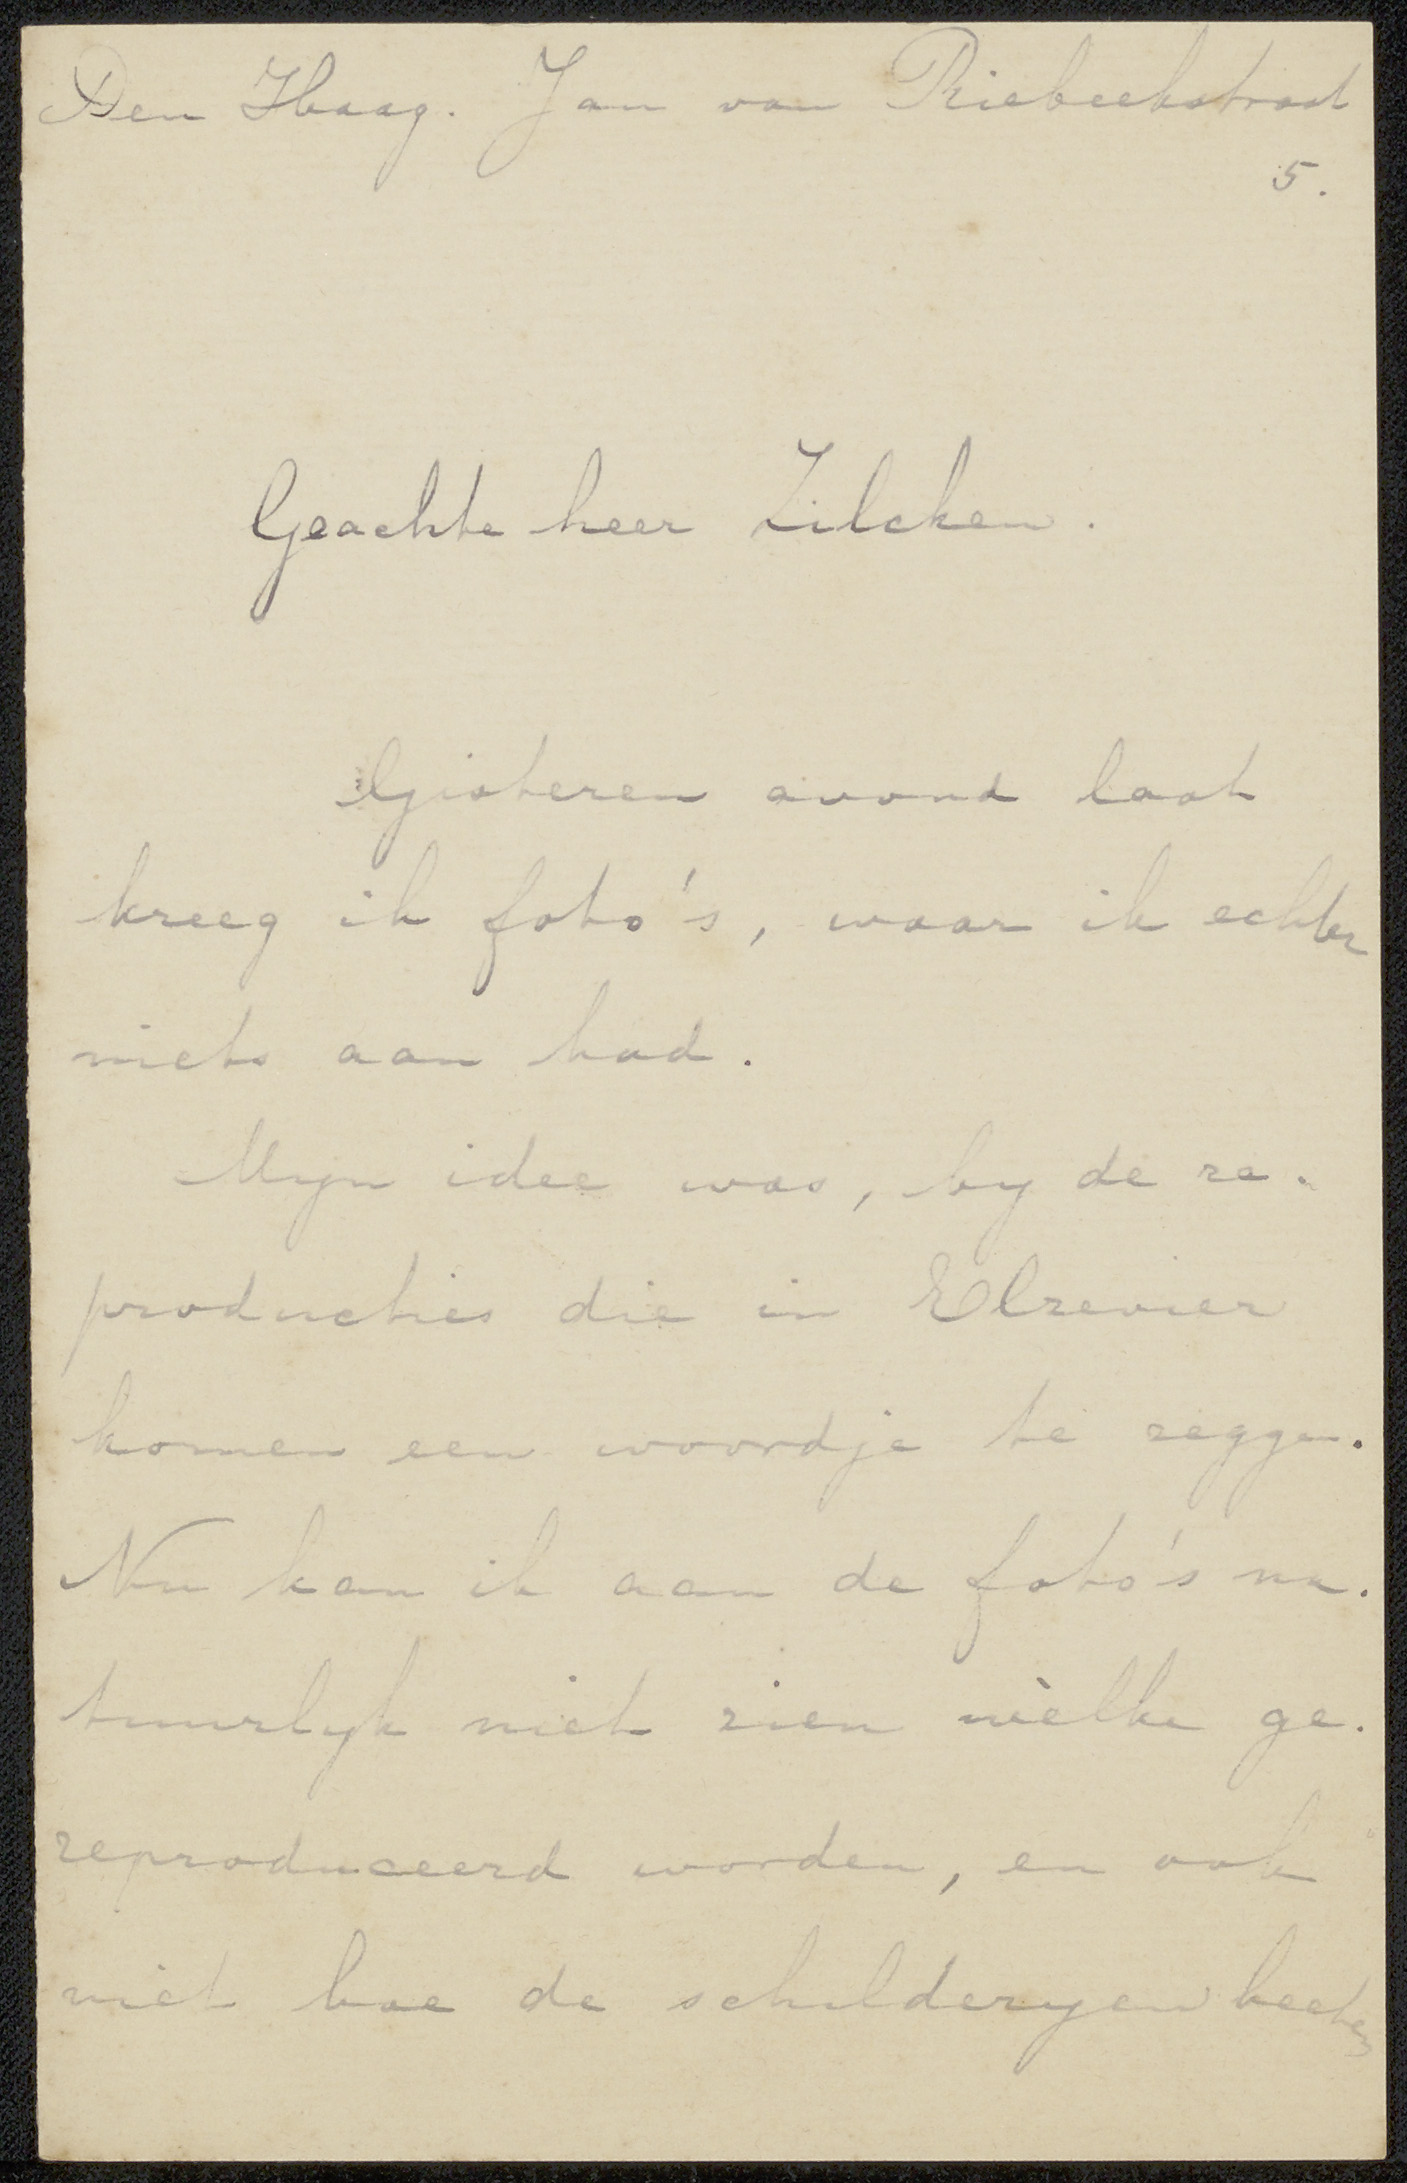 Den Haag. Jan van Riebeekstraat
5.
Geachte heer Zilcken.
Gisteren avond laat
kreeg ik foto's, waar ik echter
niets aan had.
Myn idee was, by de re-
producties die in Elzevier
komen een woordje te zeggen.
Nu kan ik aan de foto's na-
tuurlyk niet zien wèlke ge-
reproduceerd worden, en ook
niet hoe de schilderyen heeten